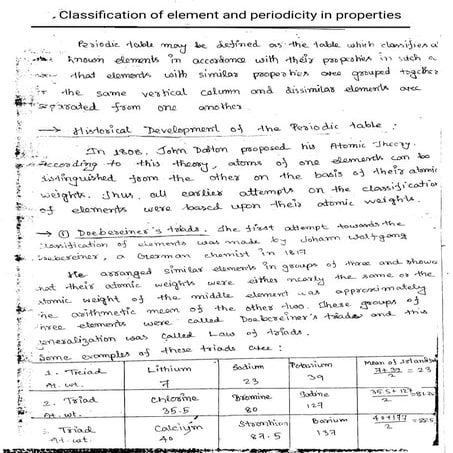 Classification of element and periodicity in properties
Periodic table may be defined as the table which classifies a
known elements in accordance with their properties in such a
that elements with similar properties are grouped together
the same vertical column and dissimilar elements are
separated from one another.
→ Historical Development of the Periodic table :
In 1808, John Dalton proposed his Atomic Theory.
According to this theory, atoms of one elements can be
distinguished from the other on the basis of their atomic
weights. Thus, all earlier attempts on the classification
of elements were based upon their atomic weights.
→ ① Doebereiner's triads. The first attempt towards the
classification of elements was made by Johann Wolfgang
Doebereiner, a German chemist in 1817
He arranged similar elements in groups of three and showed
that their atomic weights were either nearly the same or the
atomic weight of the middle element was approximately
the arithmetic mean of the other two. These groups of
three elements were called Doebereiner's triads and this
generalization was called Law of triads.
Some examples of these triads are :
1. Triad Lithium Sodium Potassium Mean of 1st and 3rd
At. wt. 7 23 39 7+39/2 = 23
2. Triad Chlorine Bromine Iodine 35.5+127/2
At. wt. 35.5 80 127
3. Triad Calcium Strontium Barium 40+137/2
At. wt. 40 87.5 137